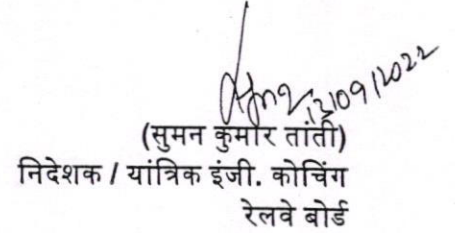 13/09/2022
(सुमन कुमार तांती)
निदेशक / यांत्रिक इंजी. कोचिंग
रेलवे बोर्ड